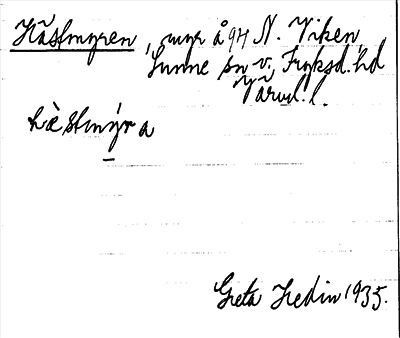 Hästmyren, myr å 94 N. Viken,
Sunne sn v. Fryksd. hd
Värml. l.
hὲstmýra
Greta Hedin 1935.